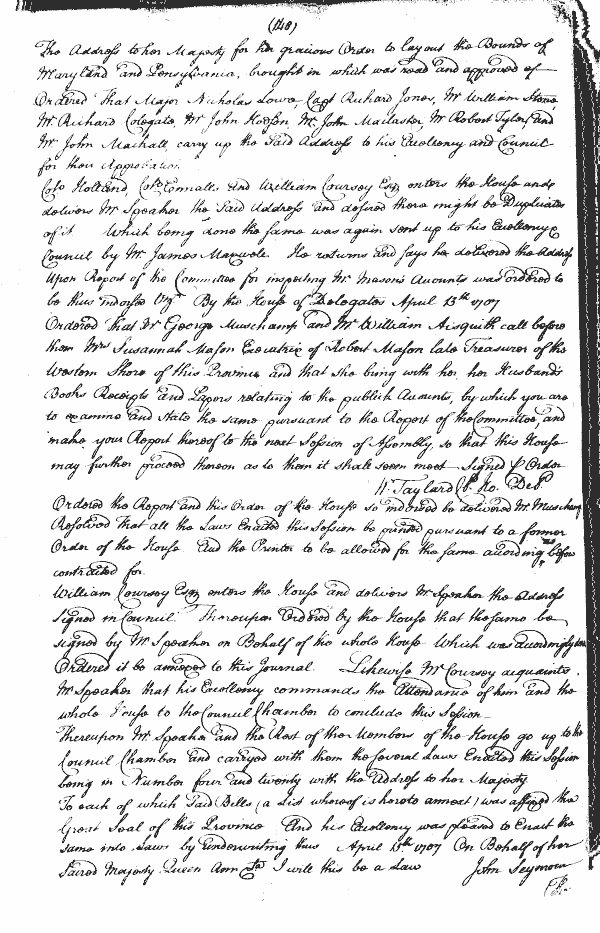 (148)
The Address to her Majesty for her gracious Order to lay out the Bounds of
Maryland and Pensylvania, brought in which was read and approved of
Ordered That Major Nicholas Lowe, Capt Richard Jones, Mr William Stone,
Mr Richard Colegate, Mr John Hodson, Mr John Macclaster, Mr Robert Tyler, and
Mr John Mackall, carry up the said Address to his Excellency and Council
for their Approbation.
Colo Holland, Colo Ennalls, and William Coursey Esqr enters the House and
delivers Mr Speaker the said Address and desired there might be Duplicates
of it Which being done the same was again sent up to his Excellency &
Council by Mr James Maxwele. He returns and says he delivered the Address
Upon Report of the Committee for inspecting Mr Masons Accounts was ordered to
be thus indorsed Vizt By the House of Delegates April 15th 1707
Ordered that Mr George Muschamp and Mr William Aisquith call before
them Mrs Susannah Mason Executrix of Robert Mason late Treasurer of the
Western Shore of this Province and that she bring with her, her Husbands
Books Receipts and Papers relating to the publick Accounts, by which you are
to examine and state the same pursuant to the Report of the Committee, and
make your Report thereof to the next Session of Assembly, so that this House
may further proceed thereon as to them it shall seem meet Signed p Order
W: Taylard Cl. Ho. Del.
Ordered the Report and this Order of the House so indorsed be delivered Mr Muschamp
Resolved that all the Laws Enacted this Session be printed pursuant to a former
Order of the House And the Printer to be allowed for the same according as before
contracted for.
William Coursey Esqr enters the House and delivers Mr Speaker the Address
Signed in Council Thereupon Ordered by the House that the same be
signed by Mr Speaker on Behalf of the whole House Which was accordingly done
Ordered it be annexed to this Journal. Likewise Mr Coursey acquaints
Mr Speaker that his Excellency commands the Attendance of him and the
whole House to the Council Chamber to conclude this Session
Thereupon Mr Speaker and the Rest of the Members of the House go up to the
Council Chamber and carryed with them the several Laws Enacted this Session
being in Number four and twenty with the Address to her Majesty
To each of which said Bills (a List whereof is hereto annext) was affixed the
Great Seal of this Province And his Excellency was pleased to Enact the
same into Laws by underwriting thus April 15th 1707 On Behalf of her
Sacred Majesty Queen Ann &a I will this be a Law John Seymour